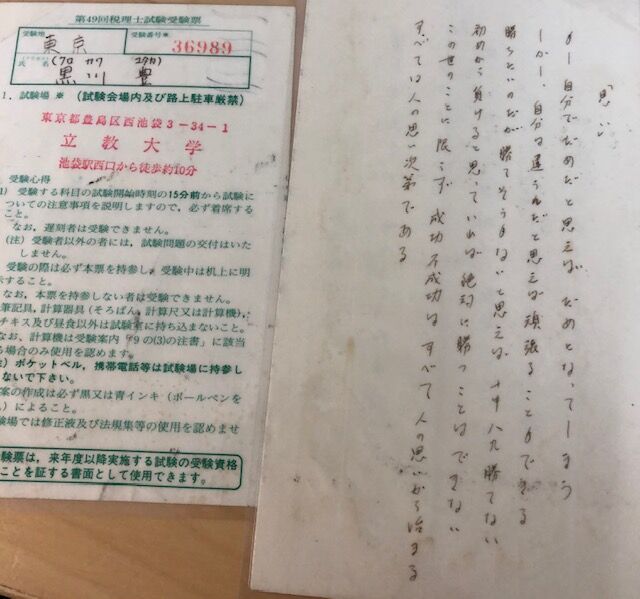 第49回税理士試験受験票
受験地
東京
受験番号※
36989
氏名
(クロ カワ ユタカ)
黒川 豊
1. 試験場 ※ (試験会場内及び路上駐車厳禁)
東京都豊島区西池袋3-34-1
立教大学
池袋駅西口から徒歩約10分
受験心得
1) 受験する科目の試験開始時刻の15分前から試験に
ついての注意事項を説明しますので,必ず着席する
こと。
なお,遅刻者は受験できません。
(注) 受験者以外の者には,試験問題の交付はいた
しません。
受験の際は必ず本票を持参し,受験中は机上に明
示すること。
なお,本票を持参しない者は受験できません。
筆記具,計算器具(そろばん,計算尺又は計算機),
チキス及び昼食以外は試験室に持ち込まないこと。
なお,計算機は受験案内「9の(3)の注書」に該当
る場合のみ使用を認めます。
ポケットベル,携帯電話等は試験場に持参し
ないで下さい。
案の作成は必ず黒又は青インキ(ボールペンを
)によること。
験場では修正液及び法規集等の使用を認めませ
験票は,来年度以降実施する試験の受験資格
ことを証する書面として使用できます。
「思い」
もし自分でだめだと思えば だめとなってしまう
しかし、自分は選ろんだと思えば頑張ることもできる
勝ちたいのだが 勝てそうもないと思えば 十中八九 勝てない
初めから負けると思っていれば 絶対に勝つことはできない
この世のことに 限らず 成功不成功は すべて 人の思いから治まる
すべては人の思い次第である